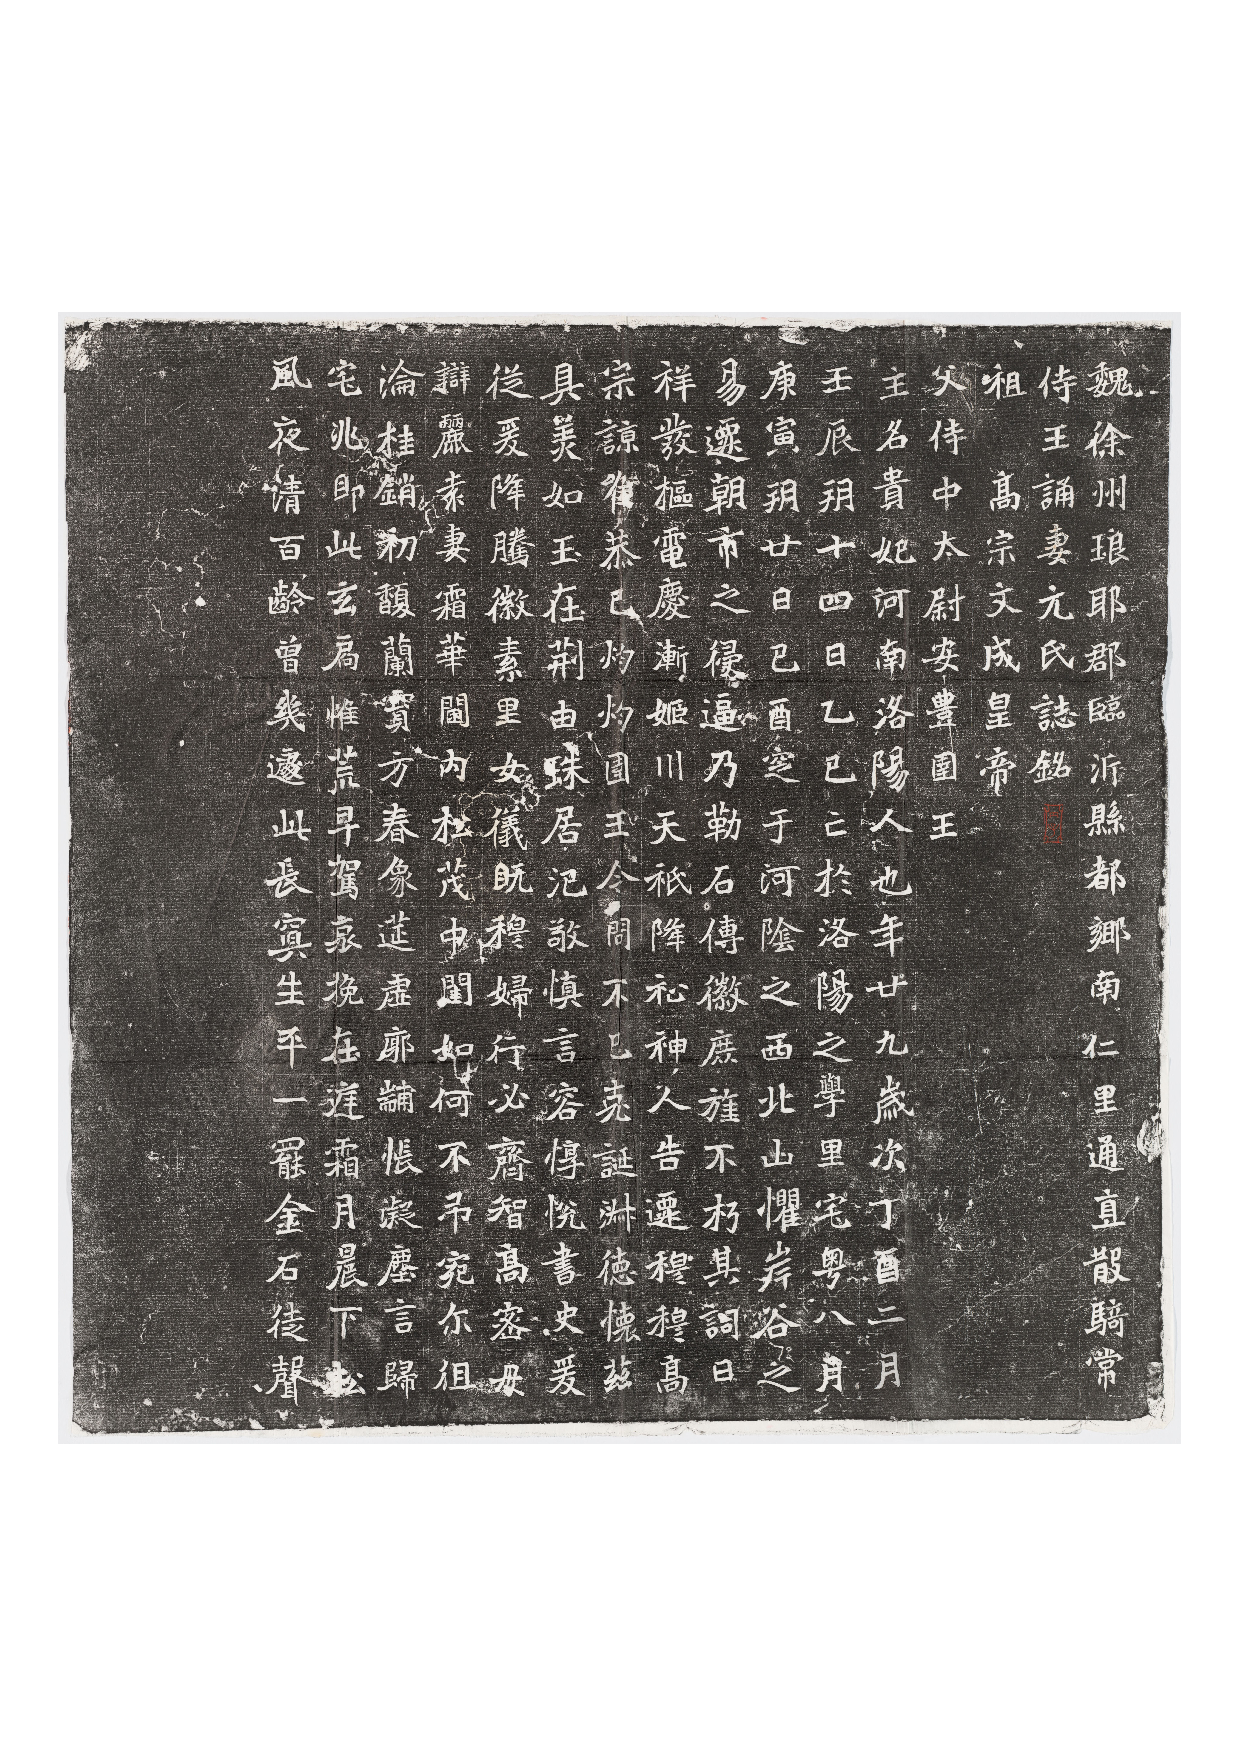 魏徐州琅耶郡臨沂縣都鄉南仁里通直散騎常
侍王誦妻元氏誌銘
祖高宗文成皇帝
父侍中太尉安豊圉王
主名貴妃河南洛陽人也年廿九歲次丁酉二月
壬辰玥十四日乙巳亡於洛陽之學里宅粤八月
庚寅玥廿日己酉窆于河陰之西北山懼岸谷之
易遷朝市之侵逼乃勒石傳徽庶旌不朽其詞曰
祥發樞電慶漸姬川天祇降祉神人告遷穆穆高
宗諒唯恭己灼灼圉王令問不已克誕淋德懷茲
具美如玉在荆由蛛居氾敬慎言容惇悅書史爰
從爰降騰徽素里女儀既穆婦行必齊智高密母
辯麗素妻霜華閫內松茂中閨如何不弔宛尔徂
淪桂銷初馥蘭實方春象莚虛廓黼帳凝塵言歸
宅兆即此玄扃惟荒早駕哀挽在遅霜月晨下松
風夜清百齡曾幾邃此長寘生平一罷金石徒聲